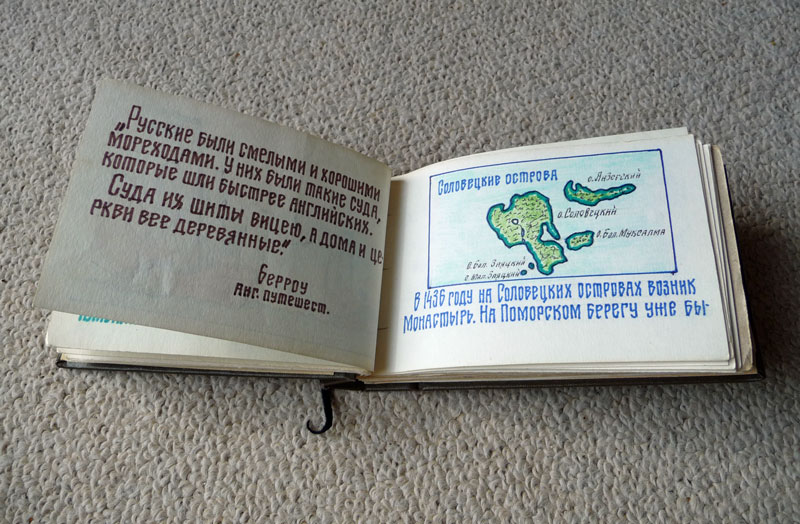 „Русские были смелыми и хорошими
мореходами. У них были такие суда,
которые шли быстрее английских.
Суда их шиты вицею, а дома и це-
ркви все деревянные".
Берроу
Анг. путешест.
Соловецкие острова
о. Анзерский
о. Соловецкий
о. Бол. Муксалма
о. Бол. Заяцкий
о. Мал. Заяцкий
В 1436 году на Соловецких островах возник
монастырь. На Поморском берегу уже бы-